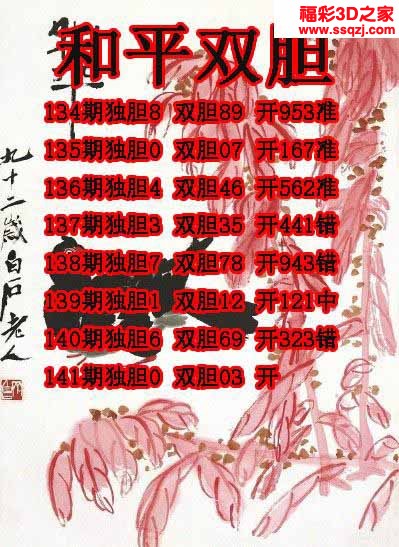 福彩3D之家
www.ssqzj.com
和平双胆
134期独胆8 双胆89 开953准
135期独胆0 双胆07 开167准
136期独胆4 双胆46 开562准
137期独胆3 双胆35 开441错
138期独胆7 双胆78 开943错
139期独胆1 双胆12 开121中
140期独胆6 双胆69 开323错
141期独胆0 双胆03 开
九十二岁白石老人